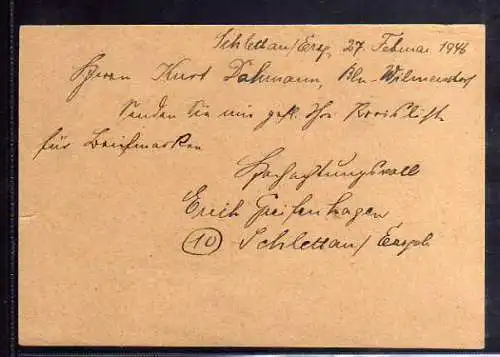 Schlettau/Erzg, 27. Februar 1946
Herrn Kurt Dahmann, Bln-Wilmersdorf
Senden Sie mir gefl. Ihre Preisliste
für Briefmarken
Hochachtungsvoll
Erich Greifenhagen
(10) Schlettau/Erzgeb